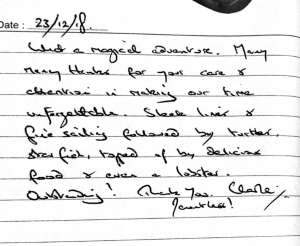 Date : 23/12/18.
What a magical adventure. Many
many thanks for your care &
attention in making our time
unforgettable. Sleek lines &
fine sailing followed by turtles,
star fish, topped of by delicious
food & even a lobster.
Outstanding! Thank you.